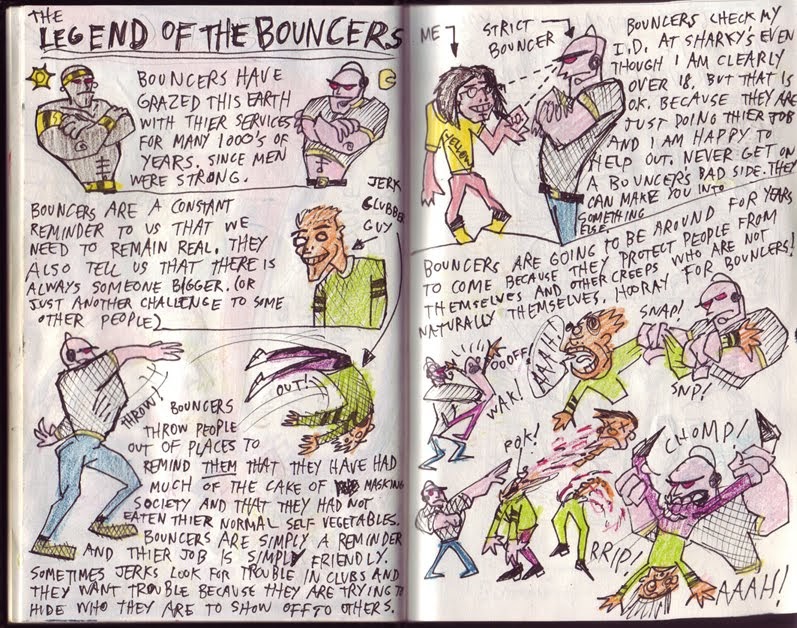 THE
LEGEND OF THE BOUNCERS
BOUNCERS HAVE
GRAZED THIS EARTH
WITH THIER SERVICES
FOR MANY 1000'S OF
YEARS. SINCE MEN
WERE STRONG.
BOUNCERS ARE A CONSTANT
REMINDER TO US THAT WE
NEED TO REMAIN REAL. THEY
ALSO TELL US THAT THERE IS
ALWAYS SOMEONE BIGGER. (OR
JUST ANOTHER CHALLENGE TO SOME
OTHER PEOPLE)
JERK
CLUBBER
GUY
THROW!
OUT!
BOUNCERS
THROW PEOPLE
OUT OF PLACES TO
REMIND THEM THAT THEY HAVE HAD
MUCH OF THE CAKE OF MASKING
SOCIETY AND THAT THEY HAD NOT
EATEN THIER NORMAL SELF VEGETABLES.
BOUNCERS ARE SIMPLY A REMINDER
AND THIER JOB IS SIMPLY FRIENDLY.
SOMETIMES JERKS LOOK FOR TROUBLE IN CLUBS AND
THEY WANT TROUBLE BECAUSE THEY ARE TRYING TO
HIDE WHO THEY ARE TO SHOW OFF TO OTHERS.
ME
STRICT
BOUNCER
BOUNCERS CHECK MY
I.D. AT SHARKY'S EVEN
THOUGH I AM CLEARLY
OVER 18. BUT THAT IS
OK. BECAUSE THEY ARE
JUST DOING THIER JOB
AND I AM HAPPY TO
HELP OUT. NEVER GET ON
A BOUNCER'S BAD SIDE. THEY
CAN MAKE YOU INTO
SOMETHING
ELSE.
BOUNCERS ARE GOING TO BE AROUND FOR YEARS
TO COME BECAUSE THEY PROTECT PEOPLE FROM
THEMSELVES AND OTHER CREEPS WHO ARE NOT
NATURALLY THEMSELVES. HOORAY FOR BOUNCERS!
OOOFF!
WAK!
AAAH!
SNAP!
SNP!
POK!
CHOMP!
RRIP!
AAAH!